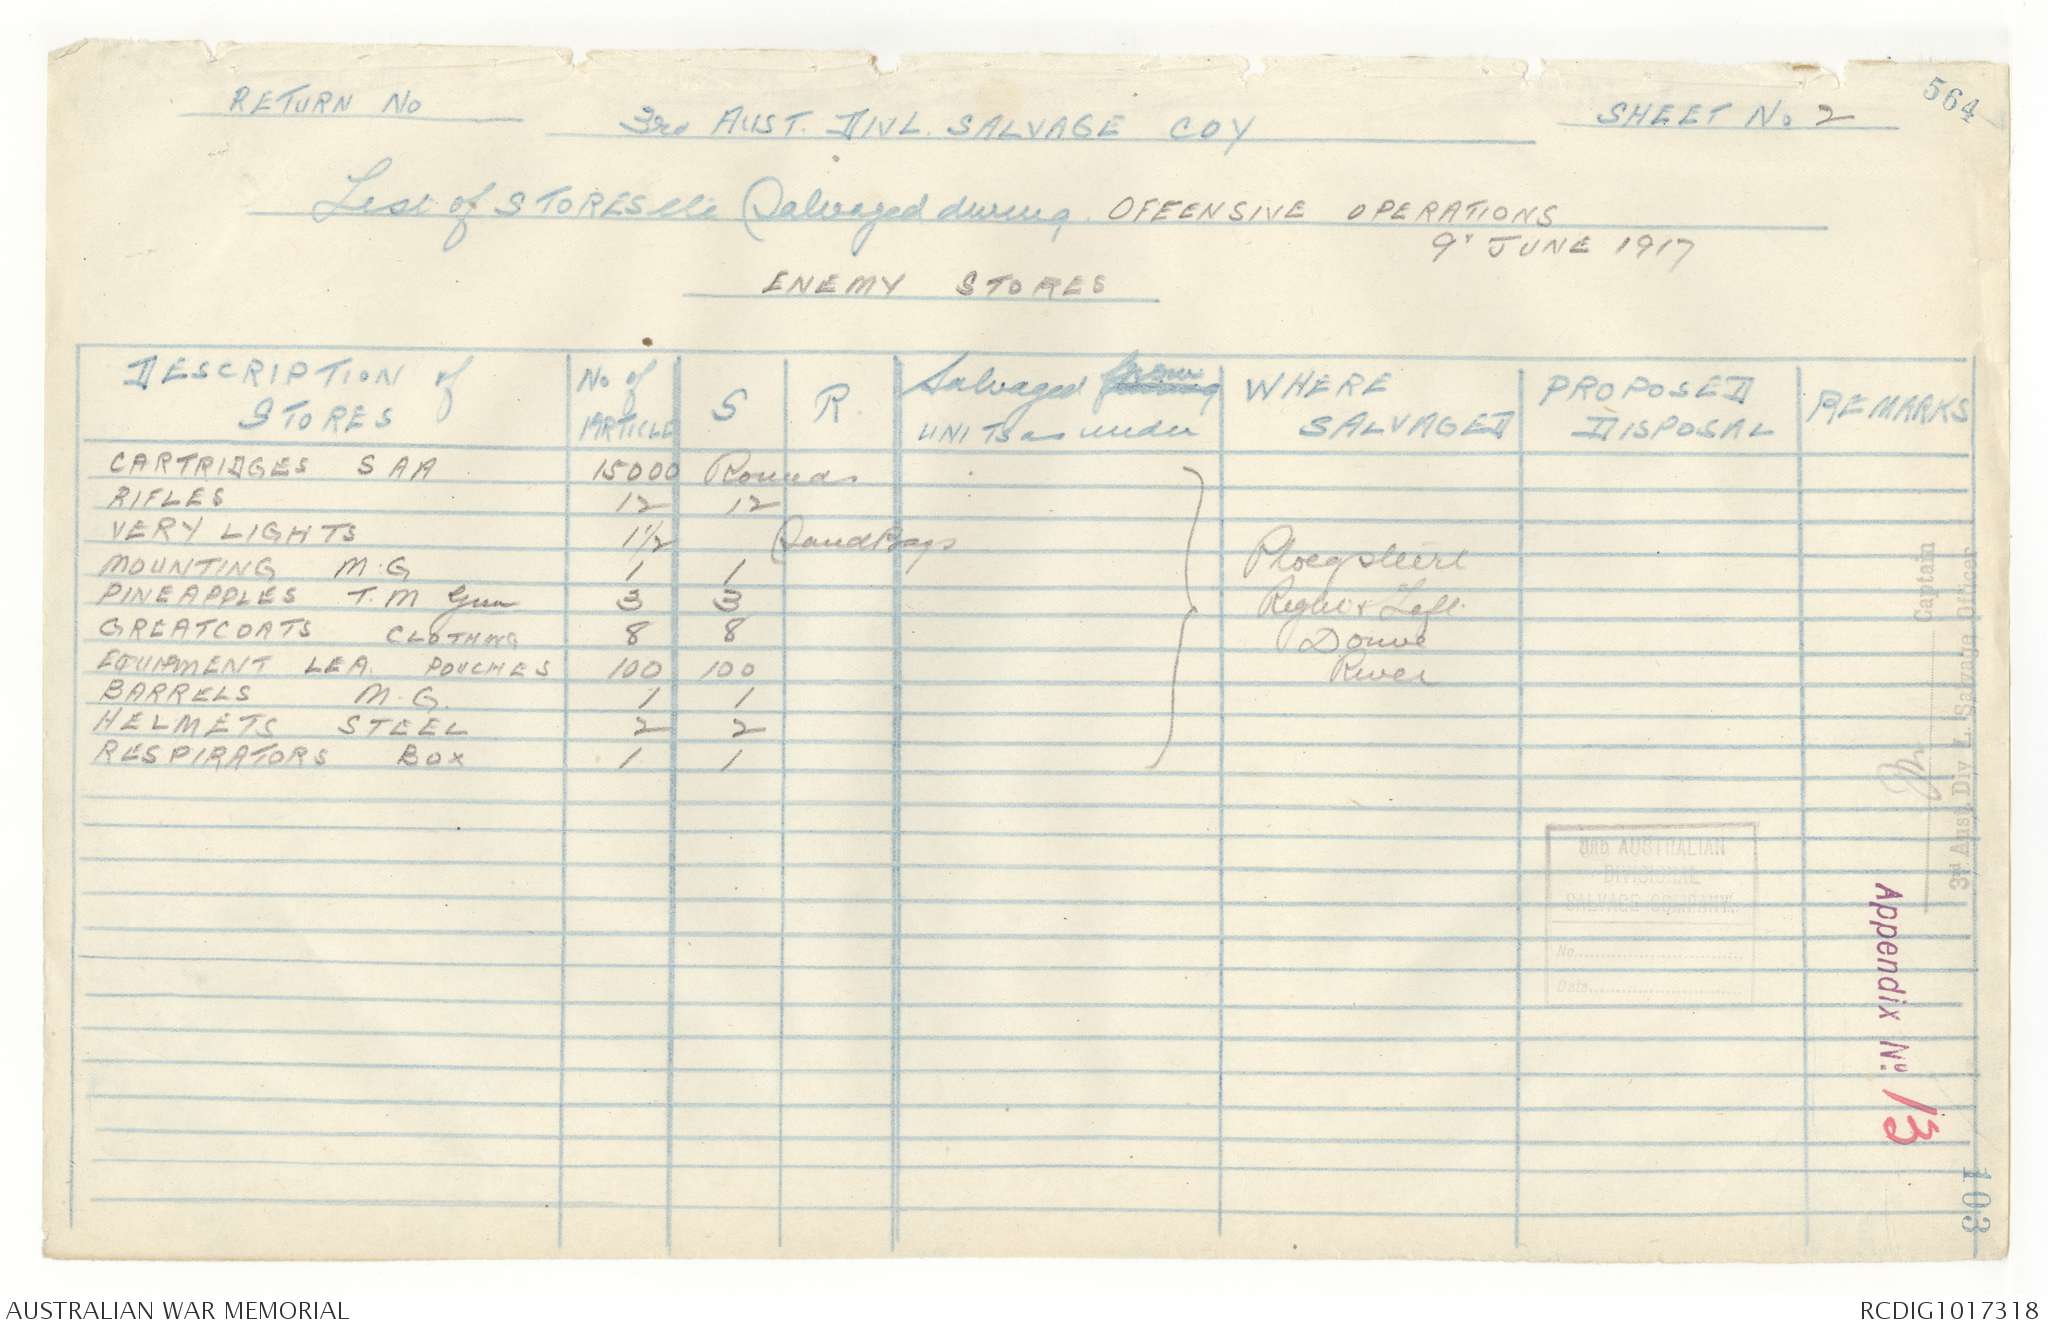 564
RETURN No
3rd AUST. DIVL. SALVAGE COY
SHEET No 2
List of STORES etc Salvaged during OFFENSIVE OPERATIONS
9" JUNE 1917
ENEMY STORES
DESCRIPTION of STORES | No of ARTICLE | S | R | Salvaged from UNITS as under | WHERE SALVAGED | PROPOSED DISPOSAL | REMARKS
CARTRIDGES S A A 15000 Rounds
RIFLES 12 12
VERY LIGHTS 1 1/2 SandBags
MOUNTING M.G 1 1
PINEAPPLES T.M Gun 3 3
GREATCOATS CLOTHING 8 8
EQUIPMENT LEA. POUCHES 100 100
BARRELS M.G. 1 1
HELMETS STEEL 2 2
RESPIRATORS BOX 1 1
Ploegsteert
Right & Left
Douve
River
Captain
3rd Aust. Div'l. Salvage Officer
3RD AUSTRALIAN
DIVISIONAL
SALVAGE COMPANY.
No.
Date
Appendix No. 13
103
AUSTRALIAN WAR MEMORIAL
RCDIG1017318